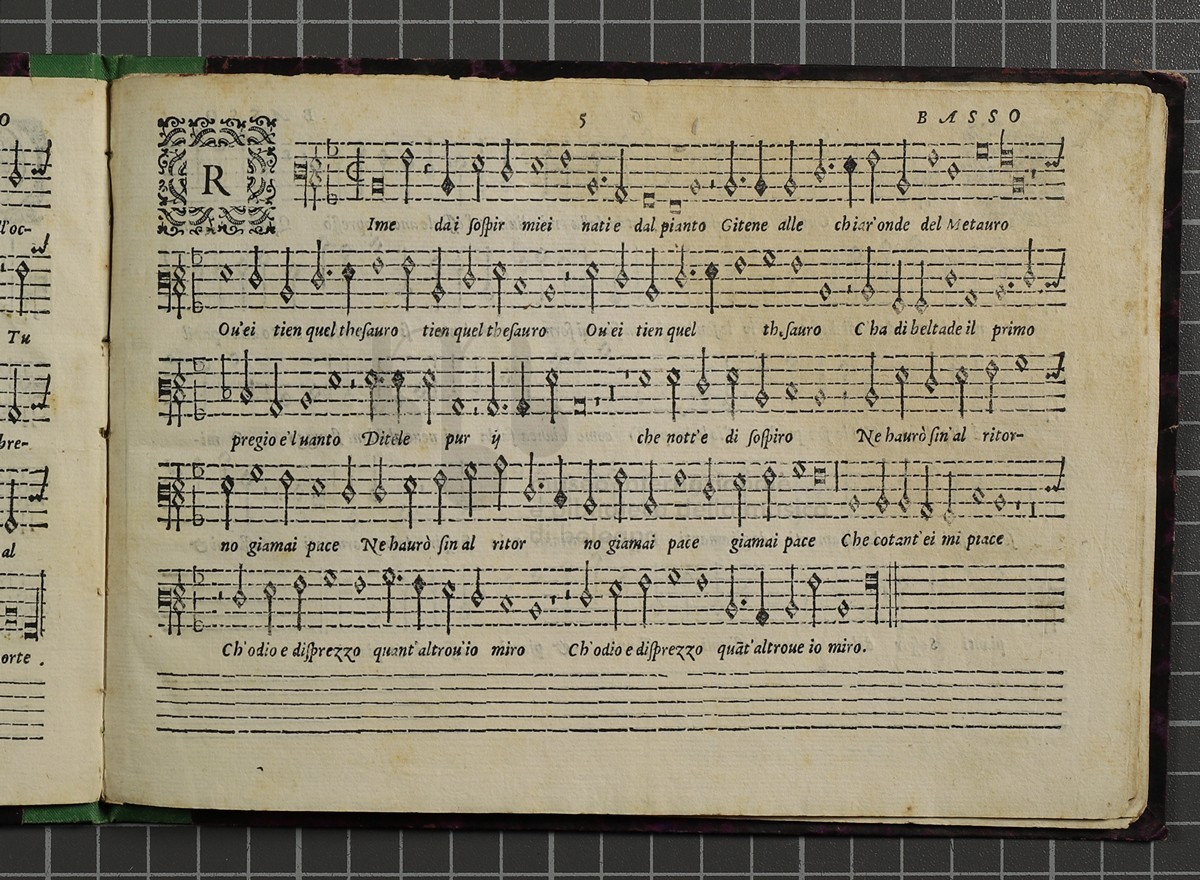 O
l'oc-
Tu
bre-
al
orte .
5
BASSO
R
Ime dai sospir miei nati e dal pianto Gitene alle chiar'onde del Metauro
Ou'ei tien quel thesauro tien quel thesauro Ou'ei tien quel thesauro C ha di beltade il primo
pregio e'l uanto Ditele pur ij che nott'e di sospiro Ne haurò sin'al ritor-
no giamai pace Ne haurò sin al ritor no giamai pace giamai pace Che cotant'ei mi piace
Ch'odio e disprezzo quant'altrou'io miro Ch'odio e disprezzo quãt'altroue io miro.